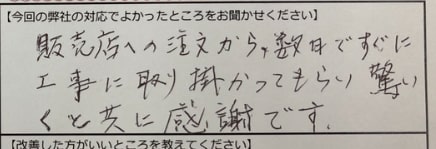 【今回の弊社の対応でよかったところをお聞かせください】
販売店への注文から、数日ですぐに
工事に取り掛かってもらい 驚い
くと共に感謝です。
【改善した方がいいところを教えてください】